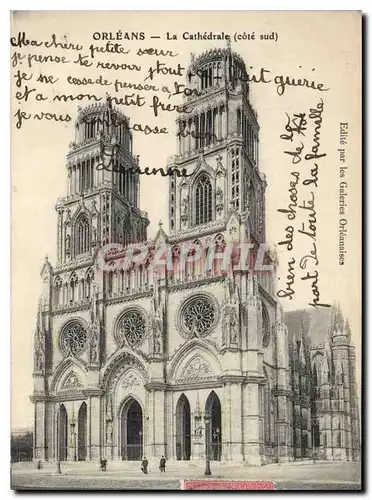 ORLÉANS — La Cathédrale (côté sud)
Ma chère petite sœur
je pense te revoir tout guérie
je ne cesse de penser a toi
et a mon petit frère
je vous embrasse
bien des choses de la
part de toute la famille
Edité par les Galeries Orléanaises
Cartophilie